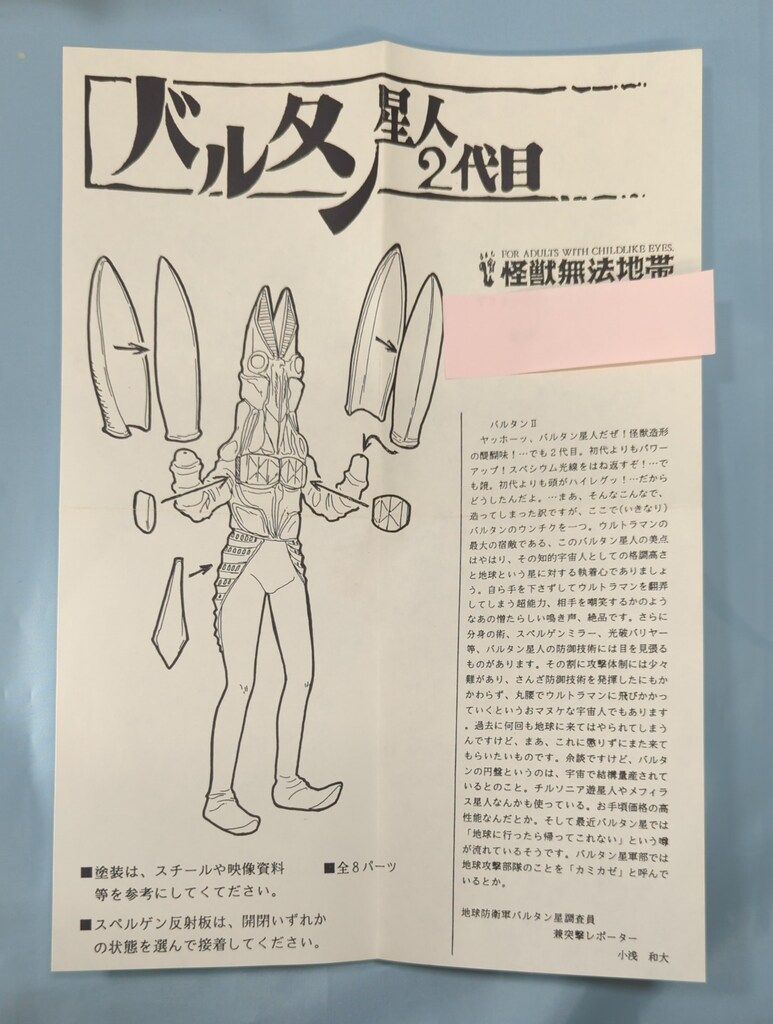 バルタン星人2代目
FOR ADULTS WITH CHILDLIKE EYES.
怪獣無法地帯
バルタンⅡ
ヤッホーッ、バルタン星人だぜ！怪獣造形
の醍醐味！…でも2代目。初代よりもパワー
アップ！スペシウム光線をはね返すぞ！…で
も鏡。初代よりも頭がハイレグッ！…だから
どうしたんだよ。…まあ、そんなこんなで、
造ってしまった訳ですが、ここで(いきなり)
バルタンのウンチクを一つ。ウルトラマンの
最大の宿敵である、このバルタン星人の美点
はやはり、その知的宇宙人としての格調高さ
と地球という星に対する執着心でありましょ
う。自ら手を下さずしてウルトラマンを翻弄
してしまう超能力、相手を嘲笑するかのよう
なあの憎たらしい鳴き声、絶品です。さらに
分身の術、スペルゲンミラー、光破バリヤー
等、バルタン星人の防御技術には目を見張る
ものがあります。その割に攻撃体制には少々
難があり、さんざ防御技術を発揮したにもか
かわらず、丸腰でウルトラマンに飛びかかっ
ていくというおマヌケな宇宙人でもあります
。過去に何回も地球に来てはやられてしまう
んですけど、まあ、これに懲りずにまた来て
もらいたいものです。余談ですけど、バルタ
ンの円盤というのは、宇宙で結構量産されて
いるとのこと。チルソニア遊星人やメフィラ
ス星人なんかも使っている。お手頃価格の高
性能なんだとか。そして最近バルタン星では
「地球に行ったら帰ってこれない」という噂
が流れているそうです。バルタン星軍部では
地球攻撃部隊のことを「カミカゼ」と呼んで
いるとか。
地球防衛軍バルタン星調査員
兼突撃レポーター
小浅　和大
■塗装は、スチールや映像資料
等を参考にしてくてださい。
■全8パーツ
■スペルゲン反射板は、開閉いずれか
の状態を選んで接着してください。